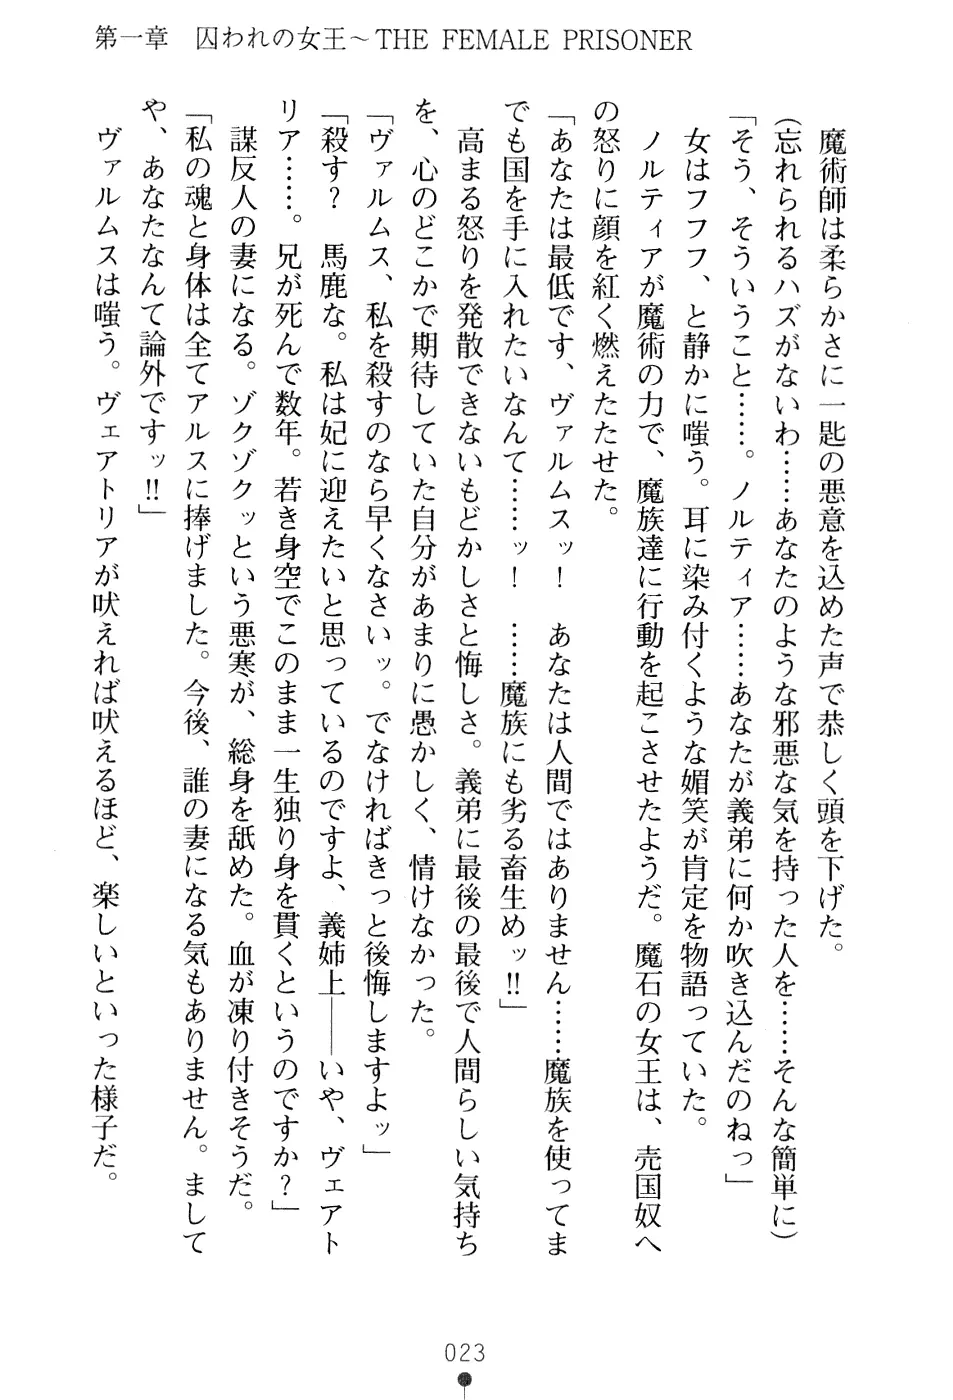 第一章　囚われの女王～THE FEMALE PRISONER
　魔術師は柔らかさに一匙の悪意を込めた声で恭しく頭を下げた。
（忘れられるハズがないわ……あなたのような邪悪な気を持った人を……そんな簡単に）
「そう、そういうこと……。ノルティア……あなたが義弟に何か吹き込んだのねっ」
　女はフフフ、と静かに嗤う。耳に染み付くような媚笑が肯定を物語っていた。
　ノルティアが魔術の力で、魔族達に行動を起こさせたようだ。魔石の女王は、売国奴へ
の怒りに顔を紅く燃えたたせた。
「あなたは最低です、ヴァルムスッ！　あなたは人間ではありません……魔族を使ってま
でも国を手に入れたいなんて……ッ！　……魔族にも劣る畜生めッ!!」
　高まる怒りを発散できないもどかしさと悔しさ。義弟に最後の最後で人間らしい気持ち
を、心のどこかで期待していた自分があまりに愚かしく、情けなかった。
「ヴァルムス、私を殺すのなら早くなさいッ。でなければきっと後悔しますよッ」
「殺す？　馬鹿な。私は妃に迎えたいと思っているのですよ、義姉上――いや、ヴェアト
リア……。兄が死んで数年。若き身空でこのまま一生独り身を貫くというのですか？」
　謀反人の妻になる。ゾクゾクッという悪寒が、総身を舐めた。血が凍り付きそうだ。
「私の魂と身体は全てアルスに捧げました。今後、誰の妻になる気もありません。まして
や、あなたなんて論外ですッ!!」
　ヴァルムスは嗤う。ヴェアトリアが吠えれば吠えるほど、楽しいといった様子だ。
023